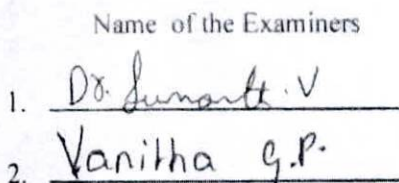 Name of the Examiners
1. Dr. Sumanth. V
2. Vanitha G.P.